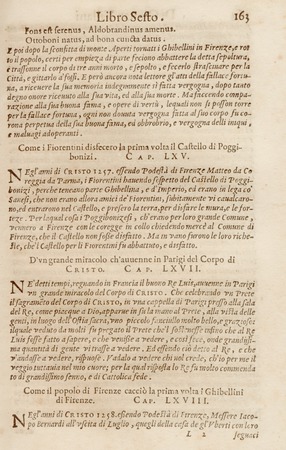 Libro Sesto. 163
Fons est serenus, Aldobrandinus amenus.
Ottoboni natus, ad bona cuncta datus.
E poi dopo la sconfitta di monte Aperti tornati i Ghibellini in Firenze, e rot
to il popolo, certi per empiezza di parte feciono abbattere la detta sepultura,
e trassonne il corpo di tre anni morto, e sepolto, e feccerlo strascinare per la
Città, e gittarlo a' fossi. E però ancora nota lettore gl'atti della fallace fortu-
na, a ricevere la sua memoria indegnamente il fatta vergogna, dopo tanto
degno onore ricevuto alla sua morte. Ma sustenendo alla sua
parazione alla sua buona fama, e opere di vertù, lequali non si posson torre
per la fallace fortuna, ogni non dovuta vergogna fatta al suo corpo fu co
rona perpetua della sua buona fama, ed obbrobrio, e vergogna delli iniqui,
e maluagi adoperanti.
Come i Fiorentini disfecero la prima volta il Castello di Poggi-
bonizi. CAP. LXV.
NEgl'anni di CRISTO 1257. essendo Podestà di Firenze Matteo da Co
reggia da Parma, i Fiorentini hauendo sospetto del Castello di Poggi-
bonizi, perche teneano parte Ghibellina, e d'Imperio, ed erano in lega co'
Sanesi, che non erano allora amici de' Fiorentini, subitamente vi caualcaro-
no, ed entrarono nel Castello, e presero la terra, per disfare le mura, e le for-
tezze. Per la qual cosa i Poggibonizesi, ch'erano per loro grande Comune,
vennero a Firenze con le coregge in collo chiedendo mercè al Comune di
Firenze, che il Castello non fosse disfatto. Ma in vano furono le loro richie-
ste, che'l Castello per li Fiorentini fu abbattuto, e disfatto.
D'vn grande miracolo ch'auuenne in Parigi del Corpo di
CRISTO. CAP. LXVII.
NE detti tempi, regnando in Francia il buono Re Luis, auuenne in Parigi
vn grande miracolo del Corpo di CRISTO. Che celebrando vn Prete
il sagramẽto del Corpo di CRISTO, in vna cappella di Parigi presso alla sala
del Re, come piacque a Dio, apparue in fra la mani al Prete, alla vista delle
genti, in luogo dell'Ostia sacra, vno piccolo fanciullo molto bello, e grazioso;
ilquale veduto da molti fu pregato il Prete che'l sostenesse infino che al Re
Luis fosse fatto assapere, e che venisse a vedere, e così fece, onde grandissi-
ma quantità di gente v'trasse a vedere. Ed essendo ciò detto al Re, e che
v'andasse a vedere, rispuose. Vadalo a vedere chi nol crede, ch'io per me il
veggio tuttauia nel mio cuore; per la qual risposta lo Re fu molto commenda
to di grandissimo senno, e di Cattolica fede.
Come il popolo di Firenze cacciò la prima volta i Ghibellini
di Firenze. CAP. LXVIII.
NEgl'anni di CRISTO 1258. essendo Podestà di Firenze, Messere Iaco-
po Bernardi all'vscita di Luglio, quegli della casa de gl'Vberti con loro
L 2 seguaci